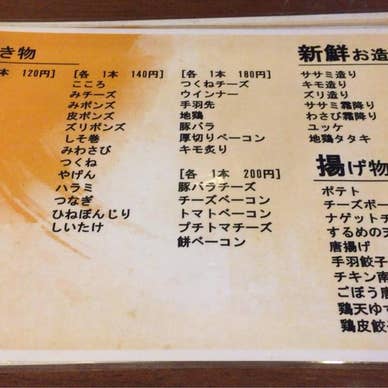 き物
本 120円]
[各 1本 140円]
こころ
みチーズ
みポンズ
皮ポンズ
ズリポンズ
しそ巻
みわさび
つくね
やげん
ハラミ
つなぎ
ひねぽんじり
しいたけ
[各 1本 180円]
つくねチーズ
ウインナー
手羽先
地鶏
豚バラ
厚切りベーコン
キモ炙り
[各 1本 200円]
豚バラチーズ
チーズベーコン
トマトベーコン
プチトマチーズ
餅ベーコン
新鮮お造
ササミ造り
キモ造り
ズリ造り
ササミ霜降り
わさび霜降り
ユッケ
地鶏タタキ
揚げ物
ポテト
チーズボー
ナゲットチ
するめの天
唐揚げ
手羽餃子
チキン南
ごぼう唐
鶏天ゆず
鶏皮餃